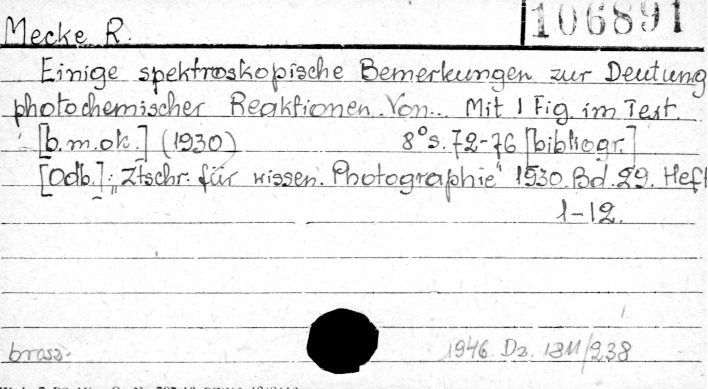 106891
Mecke R.
Einige spektroskopische Bemerkungen zur Deutung
photochemischer Reaktionen. Von... Mit 1 Fig. im Text.
[b.m.ok.] (1930) 8° s. 72-76 [bibliogr.]
[Odb.]: „Ztschr. für wissen. Photographie" 1930. Bd. 29. Heft
1-12.
brosz.
1946. Dz. 13M/238